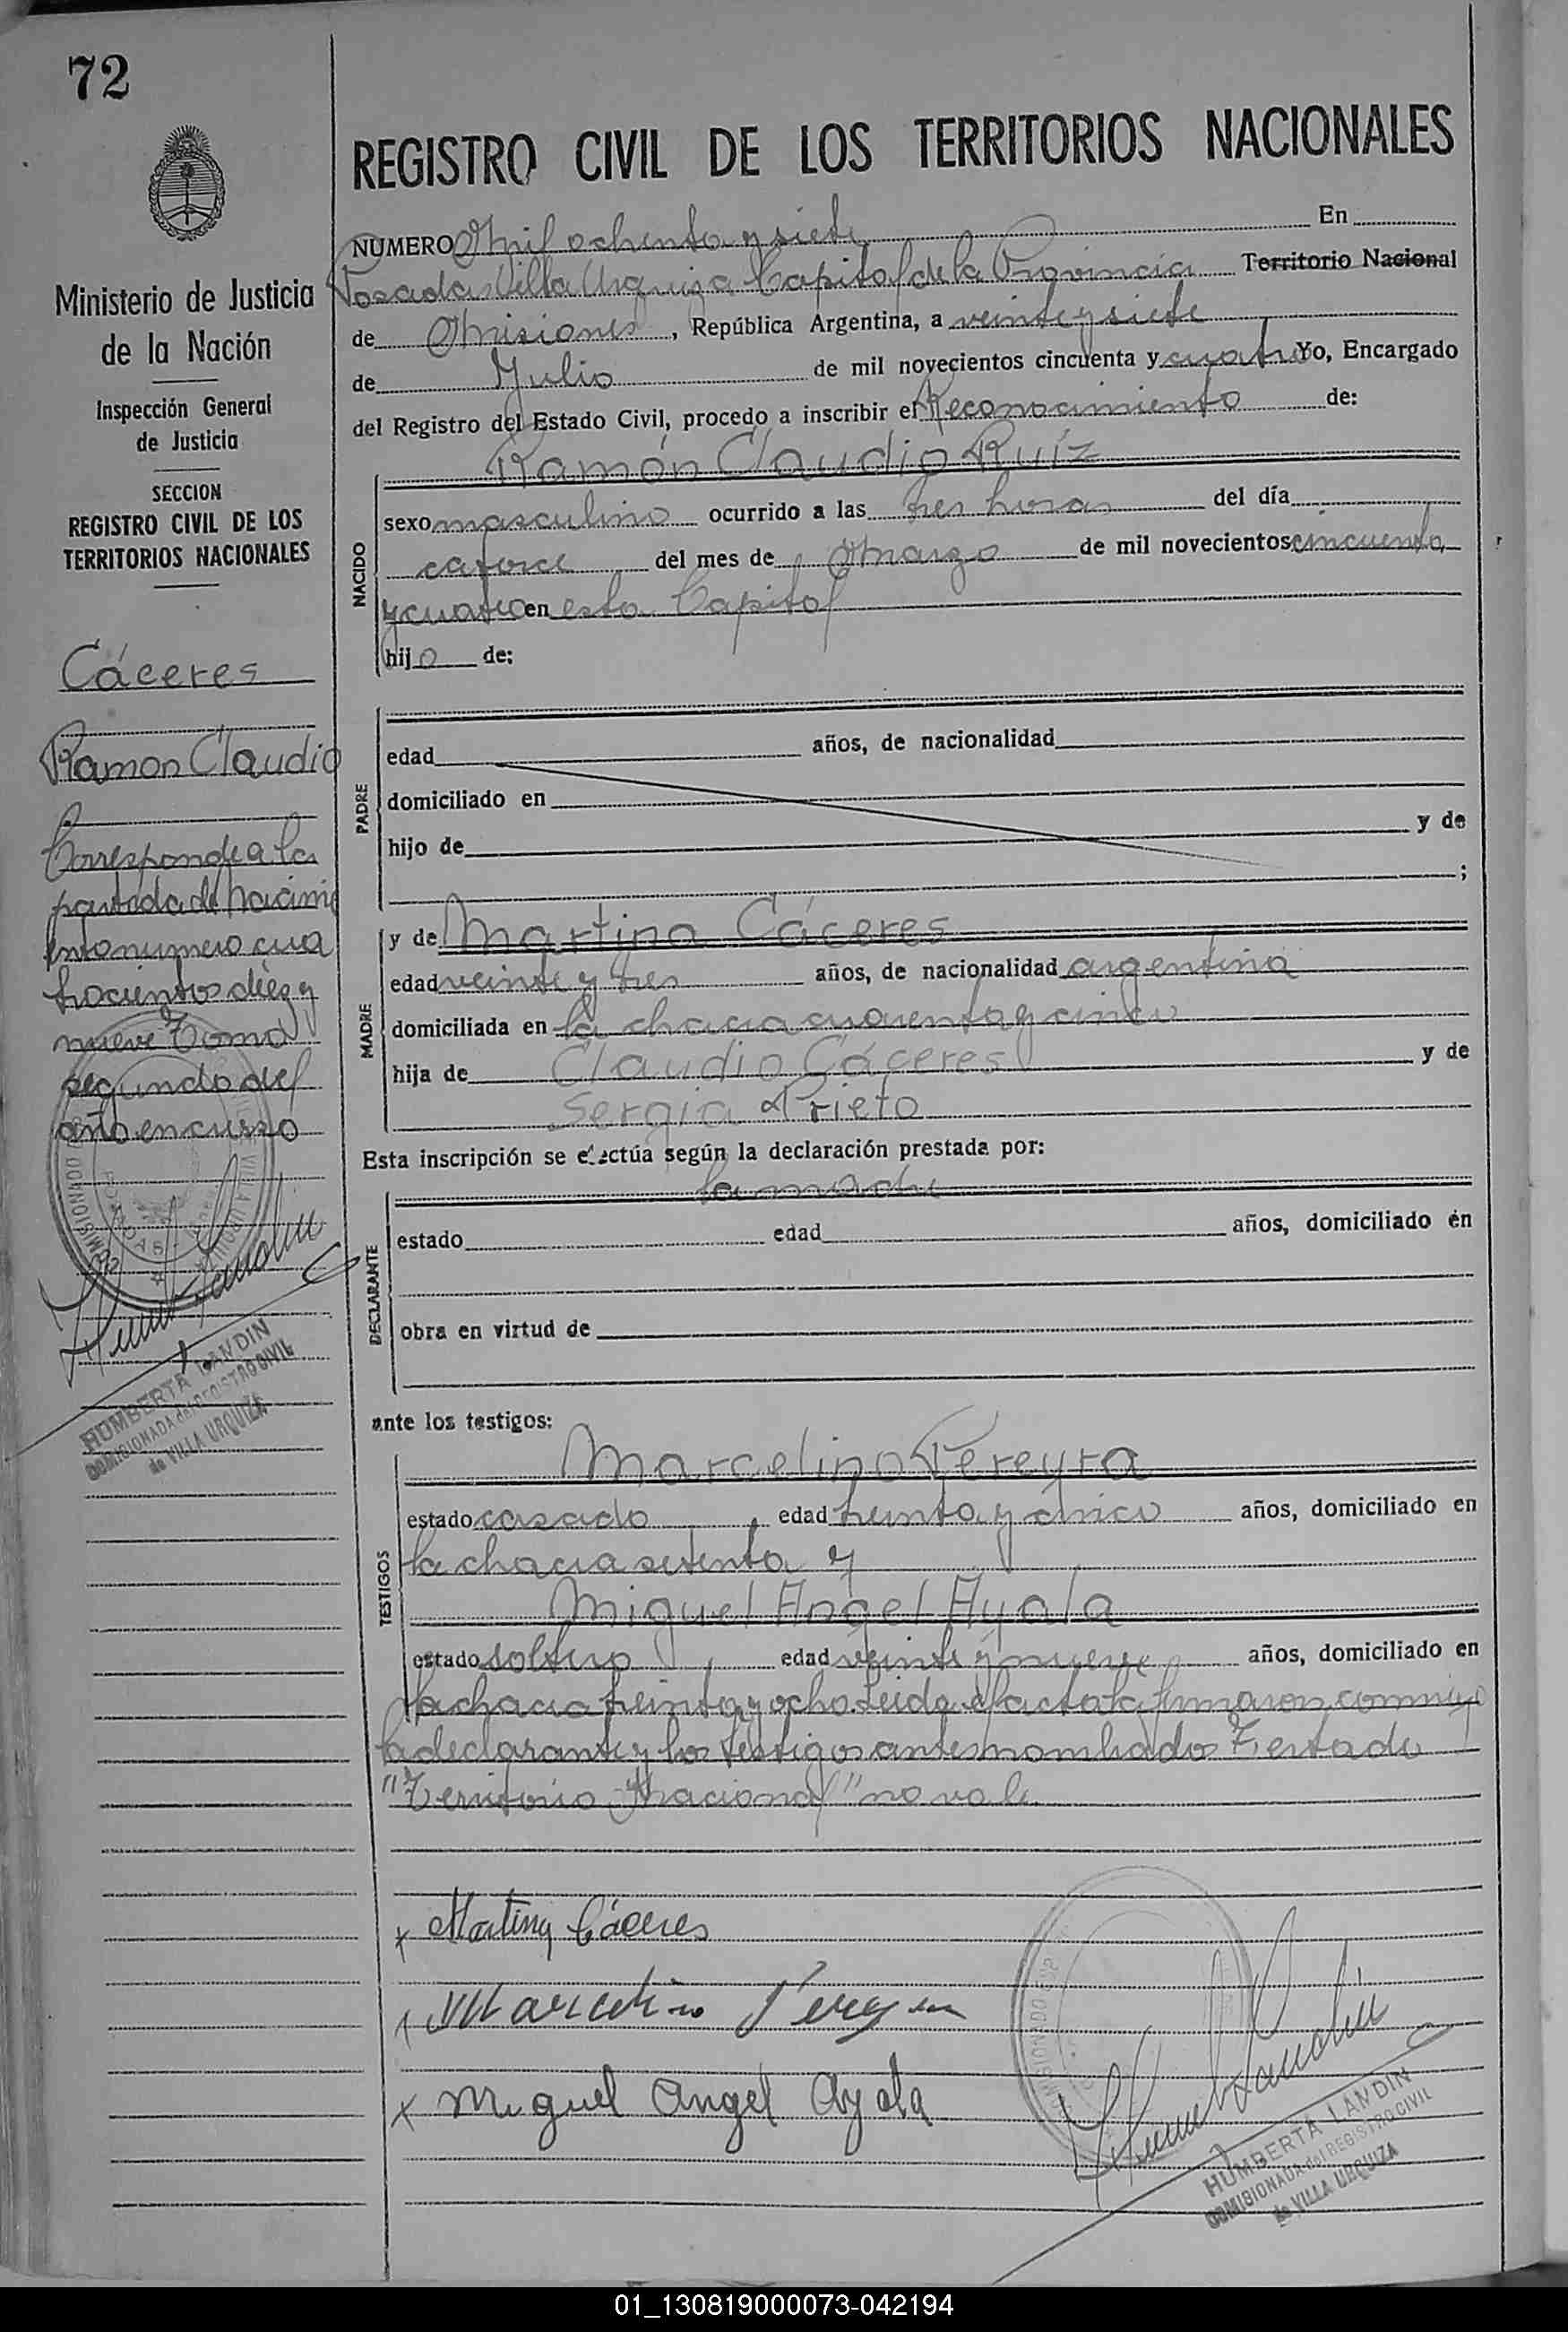 72
REGISTRO CIVIL DE LOS TERRITORIOS NACIONALES
Ministerio de Justicia
de la Nación
Inspección General
de Justicia
SECCION
REGISTRO CIVIL DE LOS
TERRITORIOS NACIONALES
Cáceres
Ramon Claudio
Corresponde a la
partida de nacimi
ento numero cua
trocientos diez y
nueve Tomo
segundo del
año en curso
HUMBERTA LANDIN
COMISIONADA del REGISTRO CIVIL
de VILLA URQUIZA
NUMERO Mil ochenta y siete En
Posadas Villa Urquiza Capital de la Provincia Territorio Nacional
de Misiones, República Argentina, a veinte y siete
de Julio de mil novecientos cincuenta y cuatro Yo, Encargado
del Registro del Estado Civil, procedo a inscribir el Reconocimiento de:
Ramón Claudio Ruíz
NACIDO
sexo masculino ocurrido a las tres horas del día
catorce del mes de Marzo de mil novecientos cincuenta
y cuatro en esta Capital
hijo de:
PADRE
edad años, de nacionalidad
domiciliado en
hijo de y de
;
MADRE
y de Martina Cáceres
edad veinte y tres años, de nacionalidad argentina
domiciliada en la chacra cuarenta y cinco
hija de Claudio Cáceres y de
Sergia Prieto
Esta inscripción se efectúa según la declaración prestada por:
la madre
DECLARANTE
estado edad años, domiciliado en
obra en virtud de
ante los testigos:
Marcelino Pereyra
TESTIGOS
estado casado, edad treinta y cinco años, domiciliado en
la chacra setenta y
Miguel Angel Ayala
estado soltero, edad veinte y nueve años, domiciliado en
la chacra treinta y ocho. Leida el acta la firmaron conmigo
la declarante y los testigos antes nombrados Testado
"Territorio Nacional" no vale
x Martina Cáceres
x Marcelino Pereyra
x Miguel Angel Ayala
HUMBERTA LANDIN
COMISIONADA del REGISTRO CIVIL
de VILLA URQUIZA
01_130819000073-042194